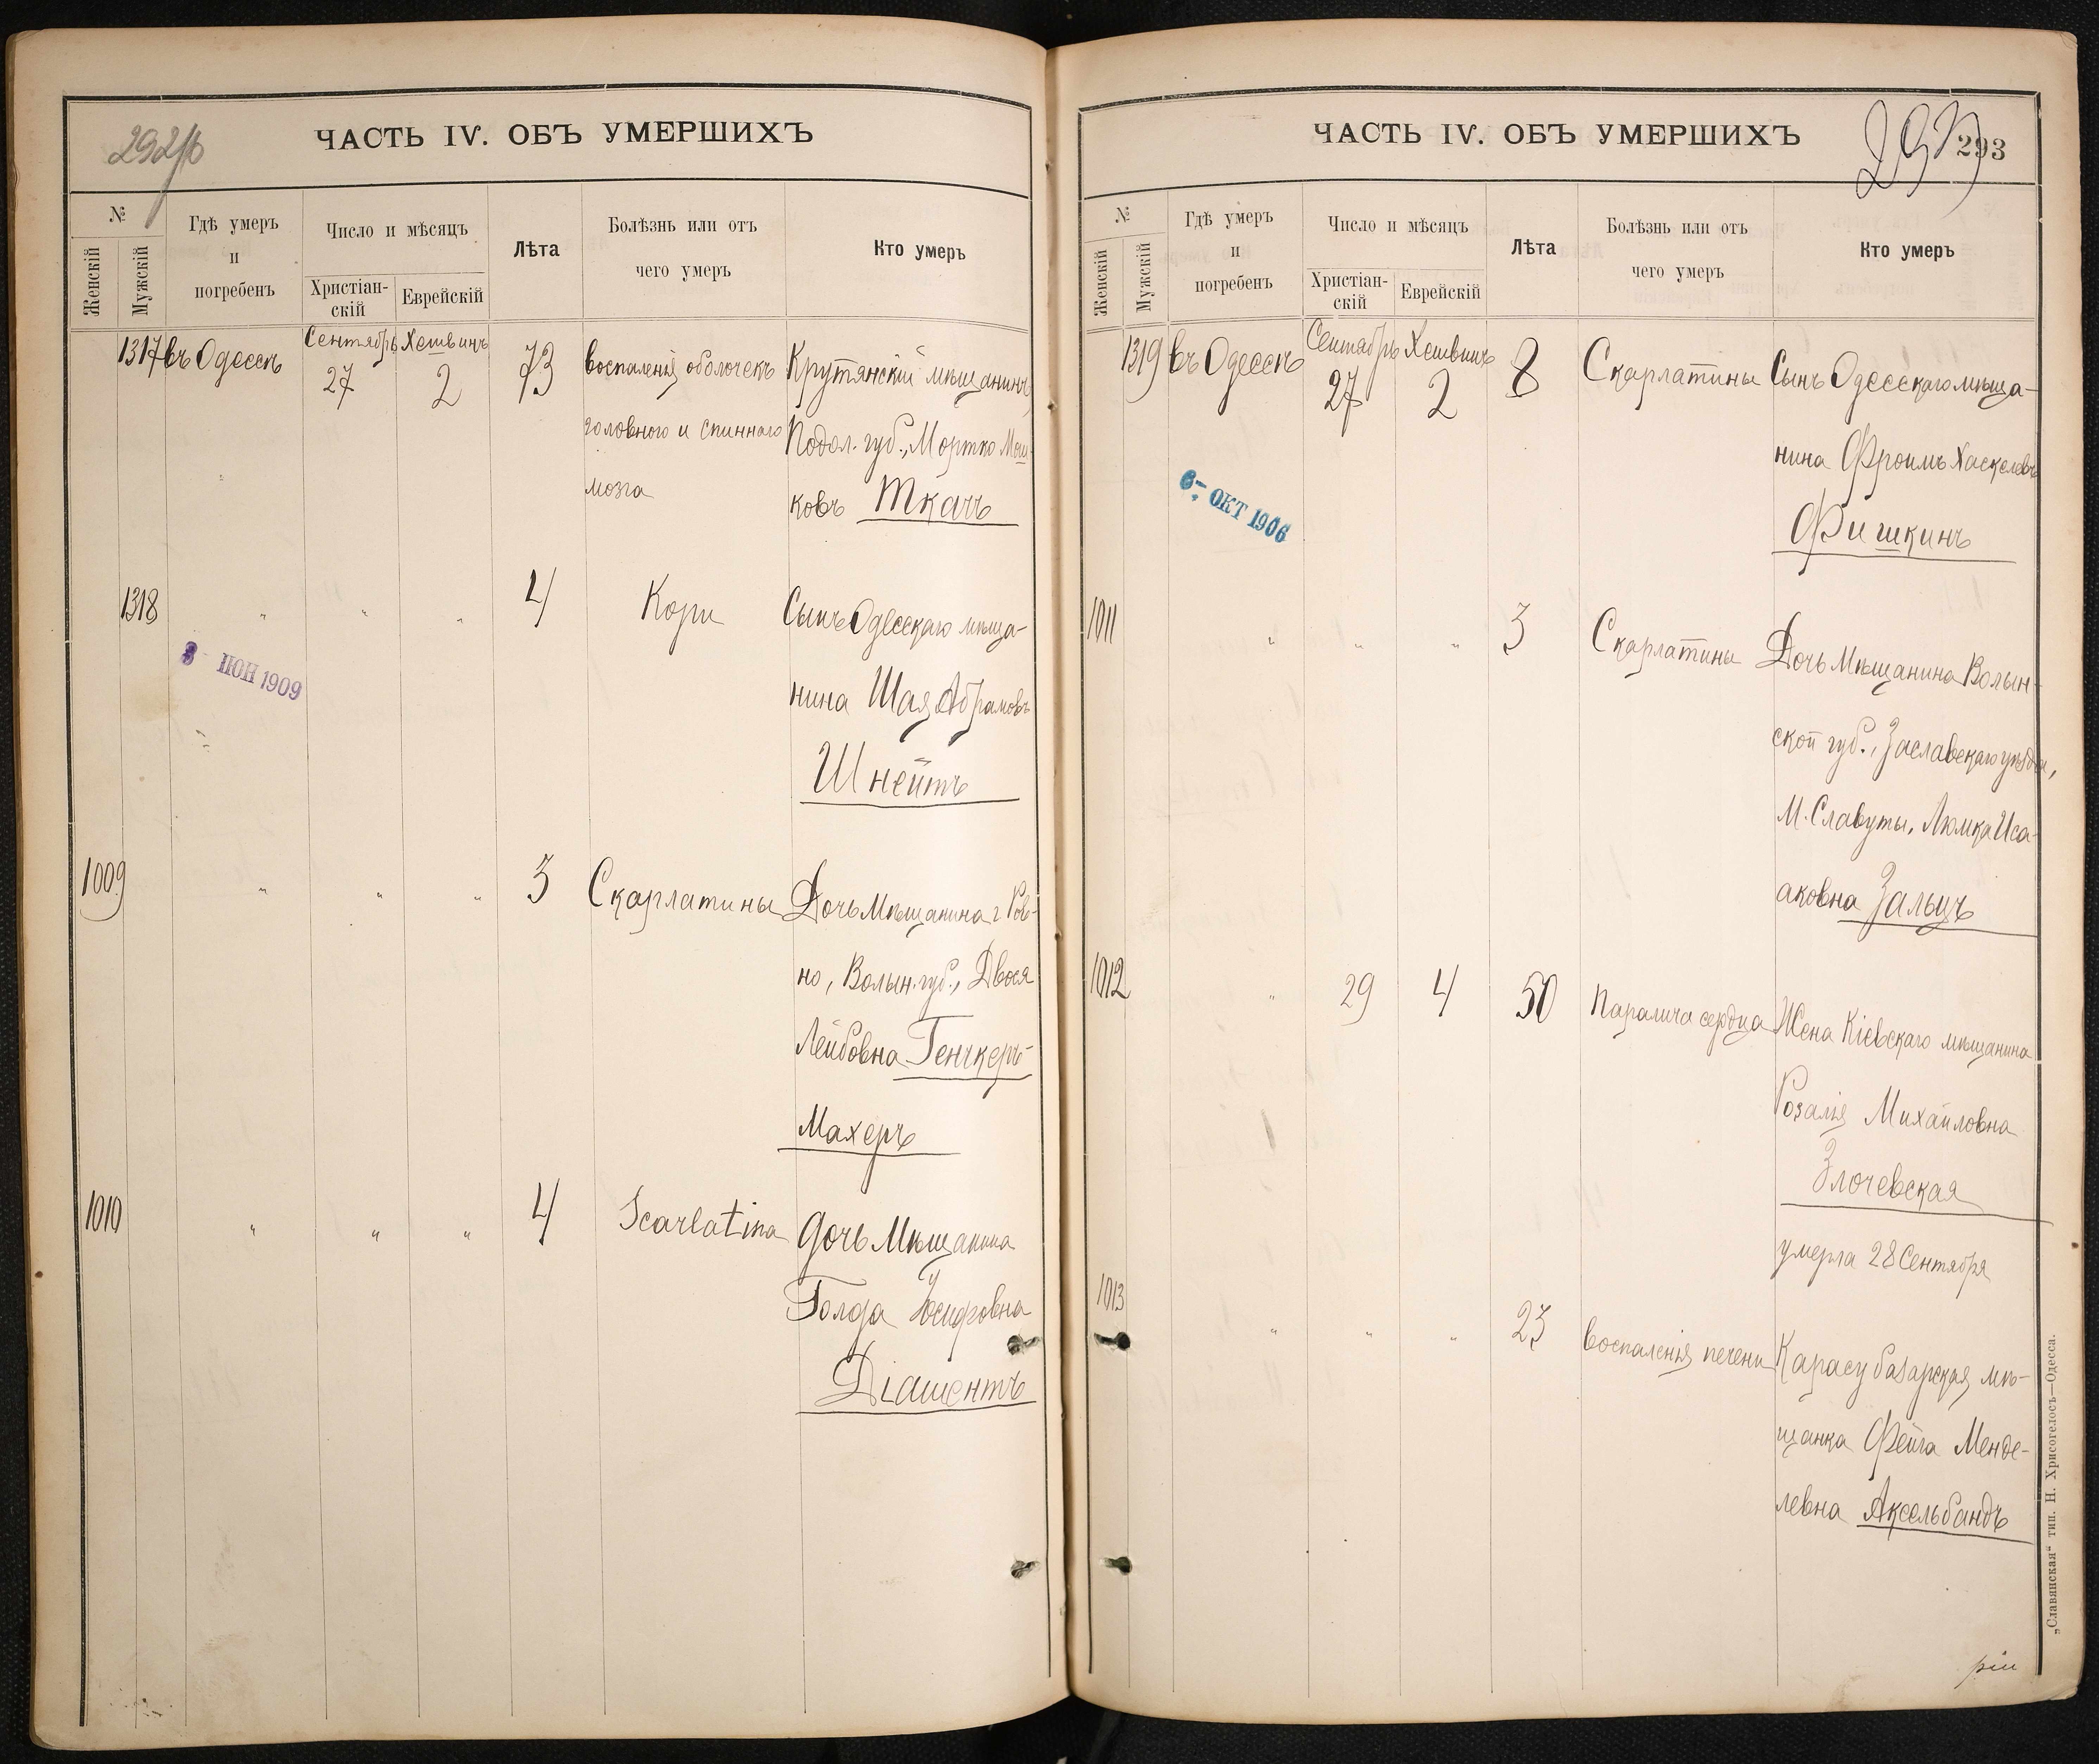 292/об
ЧАСТЬ IV. ОБЪ УМЕРШИХЪ
№
Женскій
Мужскій
Гдѣ умеръ
и
погребенъ
Число и мѣсяцъ
Христіан-
скій
Еврейскій
Лѣта
Болѣзнь или отъ
чего умеръ
Кто умеръ
1317 въ Одессѣ Сентябрь 27 Хешвинъ 2 73 воспаленія оболочекъ Крутянскій мѣщанинъ,
головного и спиннаго Подол. губ., Мортко Мош-
мозга ковъ Ткачъ
1318 " " " 4 Кори Сынъ Одесскаго мѣща-
3 - ІЮН 1909
нина Шая Абрамовъ
Шнейтъ
1009 " " " 3 Скарлатины Дочь Мѣщанина г. Ров-
но, Волын. губ., Двося
Лейбовна Генчкеръ-
Махеръ
1010 " " " 4 Scarlatina Дочь Мѣщанина
Голда Іосифовна
Діаментъ
ЧАСТЬ IV. ОБЪ УМЕРШИХЪ
293
№
Женскій
Мужскій
Гдѣ умеръ
и
погребенъ
Число и мѣсяцъ
Христіан-
скій
Еврейскій
Лѣта
Болѣзнь или отъ
чего умеръ
Кто умеръ
1319 въ Одессѣ Сентябрь 27 Хешвинъ 2 8 Скарлатины Сынъ Одесскаго мѣща-
нина Фроимъ Хаскелевъ
6 - ОКТ 1906
Фишкинъ
1011 " " " 3 Скарлатины Дочь Мѣщанина Волын-
ской губ., Заславскаго уѣзда,
М. Славуты, Люмка Иса-
аковна Зальцъ
1012 " 29 4 50 Паралича сердца Жена Кіевскаго мѣщанина
Розалія Михайловна
Злочевская
умерла 28 Сентября
1013 " " " 23 воспаленія печени Карасубазарская мѣ-
щанка Фейга Менде-
левна Аксельбандъ
„Славянская“ тип. Н. Хрисогелосъ—Одесса.